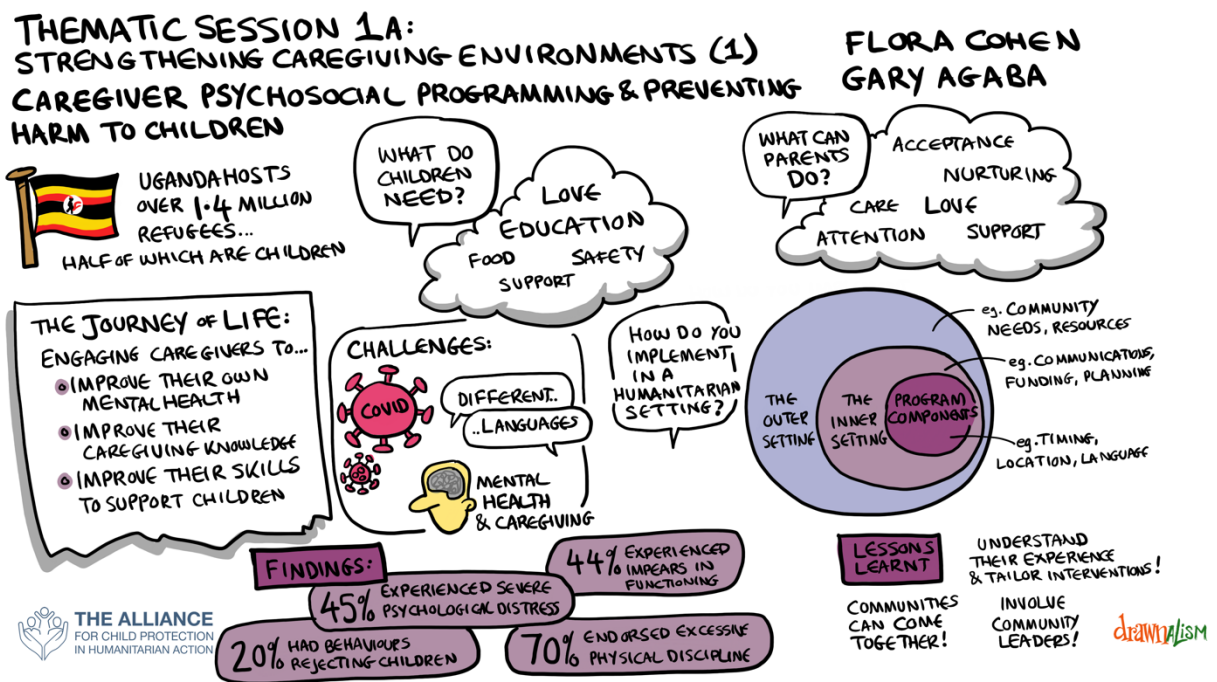 THEMATIC SESSION 1A:
STRENGTHENING CAREGIVING ENVIRONMENTS (1)
CAREGIVER PSYCHOSOCIAL PROGRAMMING & PREVENTING
HARM TO CHILDREN
FLORA COHEN
GARY AGABA
UGANDA HOSTS
OVER 1.4 MILLION
REFUGEES...
HALF OF WHICH ARE CHILDREN
WHAT DO
CHILDREN
NEED?
LOVE
EDUCATION
FOOD SAFETY
SUPPORT
WHAT CAN
PARENTS
DO?
ACCEPTANCE
NURTURING
CARE LOVE
ATTENTION SUPPORT
THE JOURNEY OF LIFE:
ENGAGING CAREGIVERS TO...
IMPROVE THEIR OWN
MENTAL HEALTH
IMPROVE THEIR
CAREGIVING KNOWLEDGE
IMPROVE THEIR SKILLS
TO SUPPORT CHILDREN
CHALLENGES:
COVID
DIFFERENT..
..LANGUAGES
MENTAL
HEALTH
& CAREGIVING
HOW DO YOU
IMPLEMENT
IN A
HUMANITARIAN
SETTING?
THE
OUTER
SETTING
THE
INNER
SETTING
PROGRAM
COMPONENTS
eg. COMMUNITY
NEEDS, RESOURCES
eg. COMMUNICATIONS,
FUNDING, PLANNING
eg. TIMING,
LOCATION, LANGUAGE
FINDINGS:
44% EXPERIENCED
IMPEARS IN
FUNCTIONING
45% EXPERIENCED SEVERE
PSYCHOLOGICAL DISTRESS
20% HAD BEHAVIOURS
REJECTING CHILDREN
70% ENDORSED EXCESSIVE
PHYSICAL DISCIPLINE
LESSONS
LEARNT
UNDERSTAND
THEIR EXPERIENCE
& TAILOR INTERVENTIONS!
COMMUNITIES
CAN COME
TOGETHER!
INVOLVE
COMMUNITY
LEADERS!
THE ALLIANCE
FOR CHILD PROTECTION
IN HUMANITARIAN ACTION
drawnalism